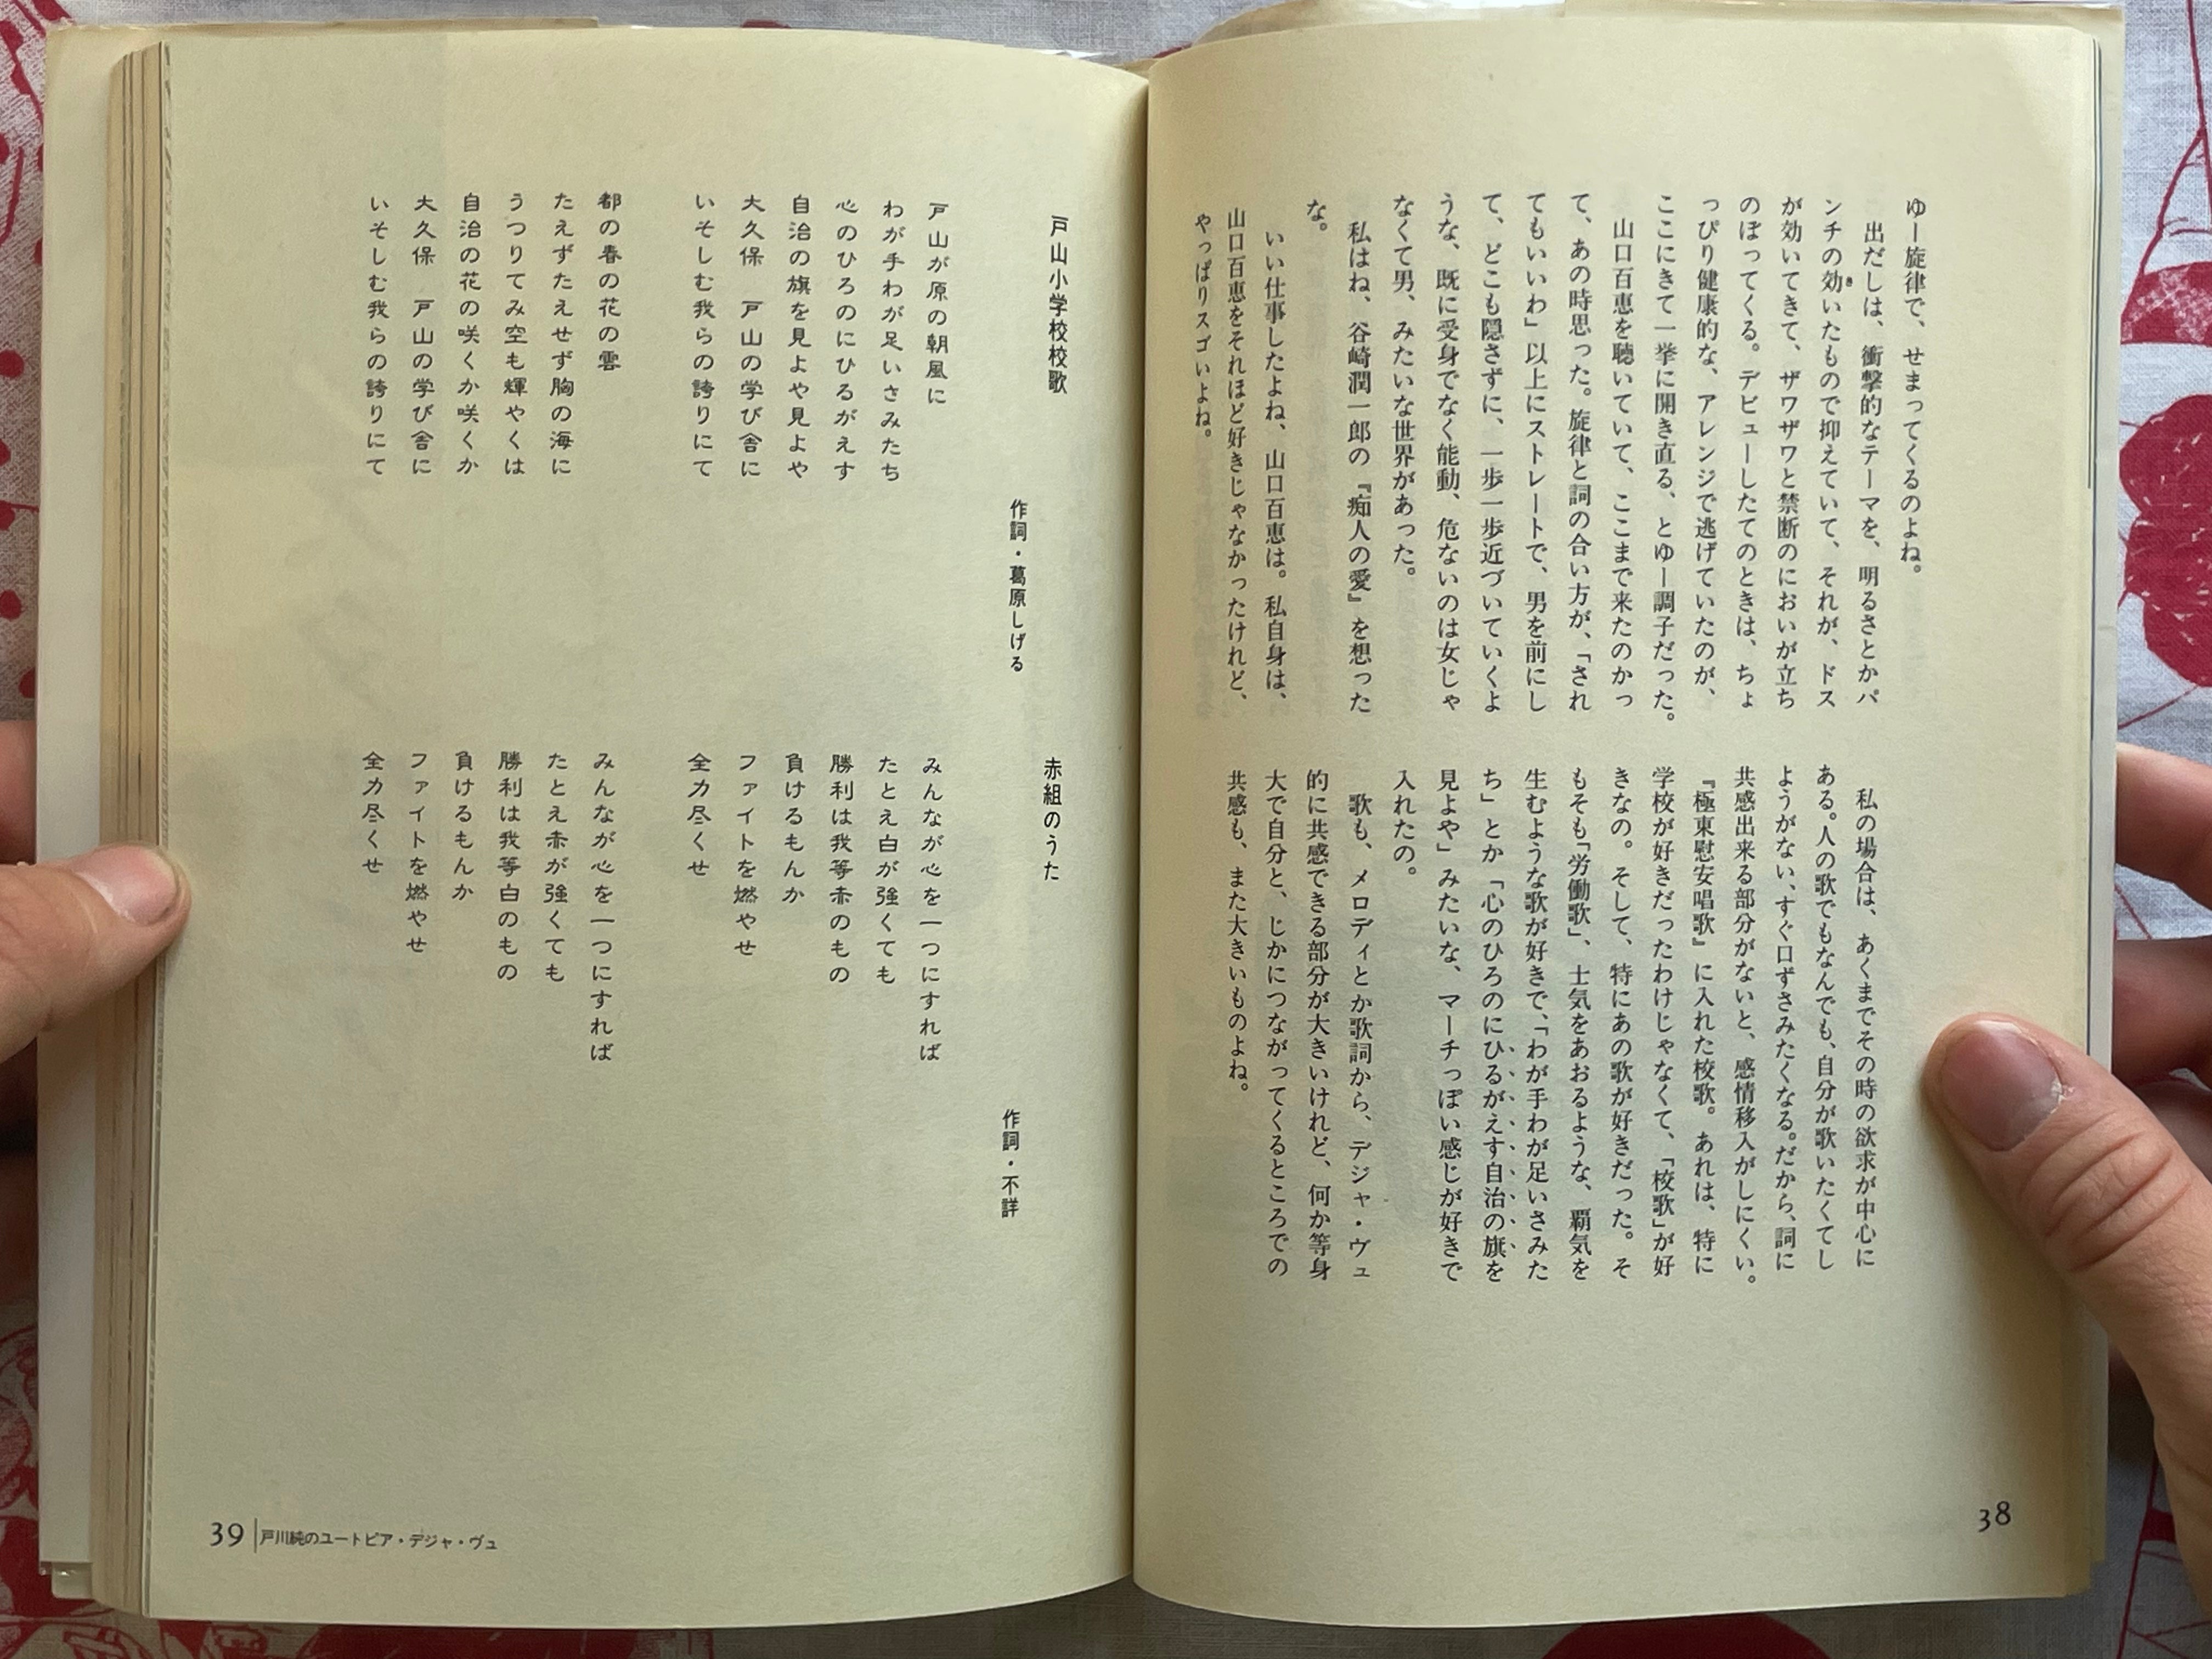 ゆー旋律で、せまってくるのよね。
出だしは、衝撃的なテーマを、明るさとかパ
ンチの効いたもので抑えていて、それが、ドス
が効いてきて、ザワザワと禁断のにおいが立ち
のぼってくる。デビューしたてのときは、ちょ
っぴり健康的な、アレンジで逃げていたのが、
ここにきて一挙に開き直る、とゆー調子だった。
山口百恵を聴いていて、ここまで来たのかっ
て、あの時思った。旋律と詞の合い方が、「され
てもいいわ」以上にストレートで、男を前にし
て、どこも隠さずに、一歩一歩近づいていくよ
うな、既に受身でなく能動、危ないのは女じゃ
なくて男、みたいな世界があった。
私はね、谷崎潤一郎の『痴人の愛』を想った
な。
いい仕事したよね、山口百恵は。私自身は、
山口百恵をそれほど好きじゃなかったけれど、
やっぱりスゴいよね。
私の場合は、あくまでその時の欲求が中心に
ある。人の歌でもなんでも、自分が歌いたくてし
ようがない、すぐ口ずさみたくなる。だから、詞に
共感出来る部分がないと、感情移入がしにくい。
『極東慰安唱歌』に入れた校歌。あれは、特に
学校が好きだったわけじゃなくて、「校歌」が好
きなの。そして、特にあの歌が好きだった。そ
もそも「労働歌」、士気をあおるような、覇気を
生むような歌が好きで、「わが手わが足いさみた
ち」とか「心のひろのにひるがえす自治の旗を
見よや」みたいな、マーチっぽい感じが好きで
入れたの。
歌も、メロディとか歌詞から、デジャ・ヴュ
的に共感できる部分が大きいけれど、何か等身
大で自分と、じかにつながってくるところでの
共感も、また大きいものよね。
38
戸山小学校校歌
作詞・葛原しげる
戸山が原の朝風に
わが手わが足いさみたち
心のひろのにひるがえす
自治の旗を見よや見よや
大久保　戸山の学び舎に
いそしむ我らの誇りにて
都の春の花の雲
たえずたえせず胸の海に
うつりてみ空も輝やくは
自治の花の咲くか咲くか
大久保　戸山の学び舎に
いそしむ我らの誇りにて
赤組のうた
作詞・不詳
みんなが心を一つにすれば
たとえ白が強くても
勝利は我等赤のもの
負けるもんか
ファイトを燃やせ
全力尽くせ
みんなが心を一つにすれば
たとえ赤が強くても
勝利は我等白のもの
負けるもんか
ファイトを燃やせ
全力尽くせ
39 戸川純のユートピア・デジャ・ヴュ